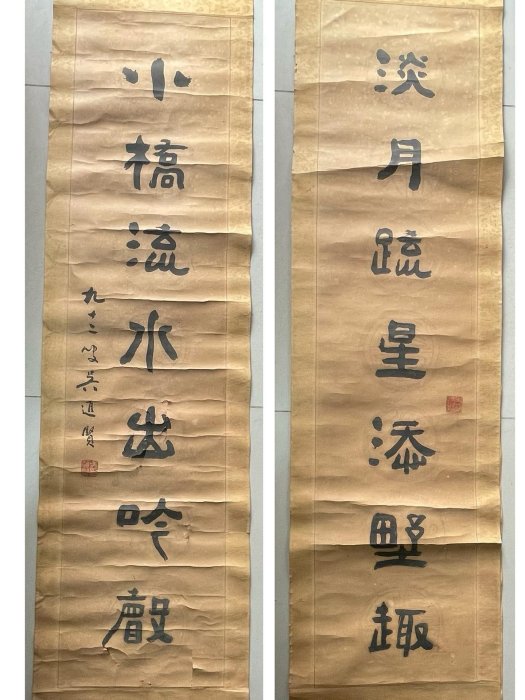 淡月疏星添墅趣
小橋流水出吟聲
九十二叟吳進賢